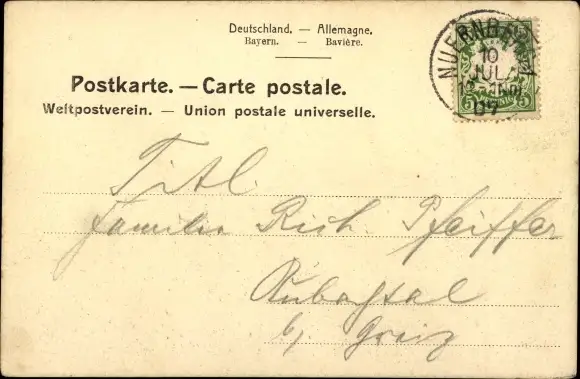 Deutschland. — Allemagne.
Bayern. — Bavière.
Postkarte. — Carte postale.
Weltpostverein. — Union postale universelle.
NUERNBERG
10
JUL
07
5 5
Titl.
Familie Rich. Pfeiffer
b/ Greiz